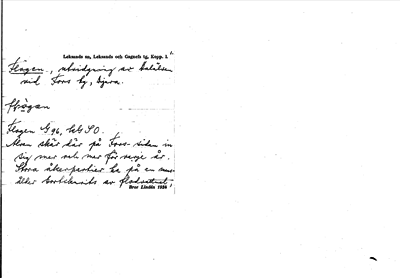 Leksands sn, Leksands och Gagnefs tg, Kopp. l.
Flogen, utvidgning av Dalälven
vid Fors by, Djura.
Flogen G 96, bl. SO.
Älven skär där på Fors-sidan in
sig mer och mer för varje år.
Stora åkerpartier ha på en mans-
ålder bortskurits av flodvattnet.
Bror Lindén 1934